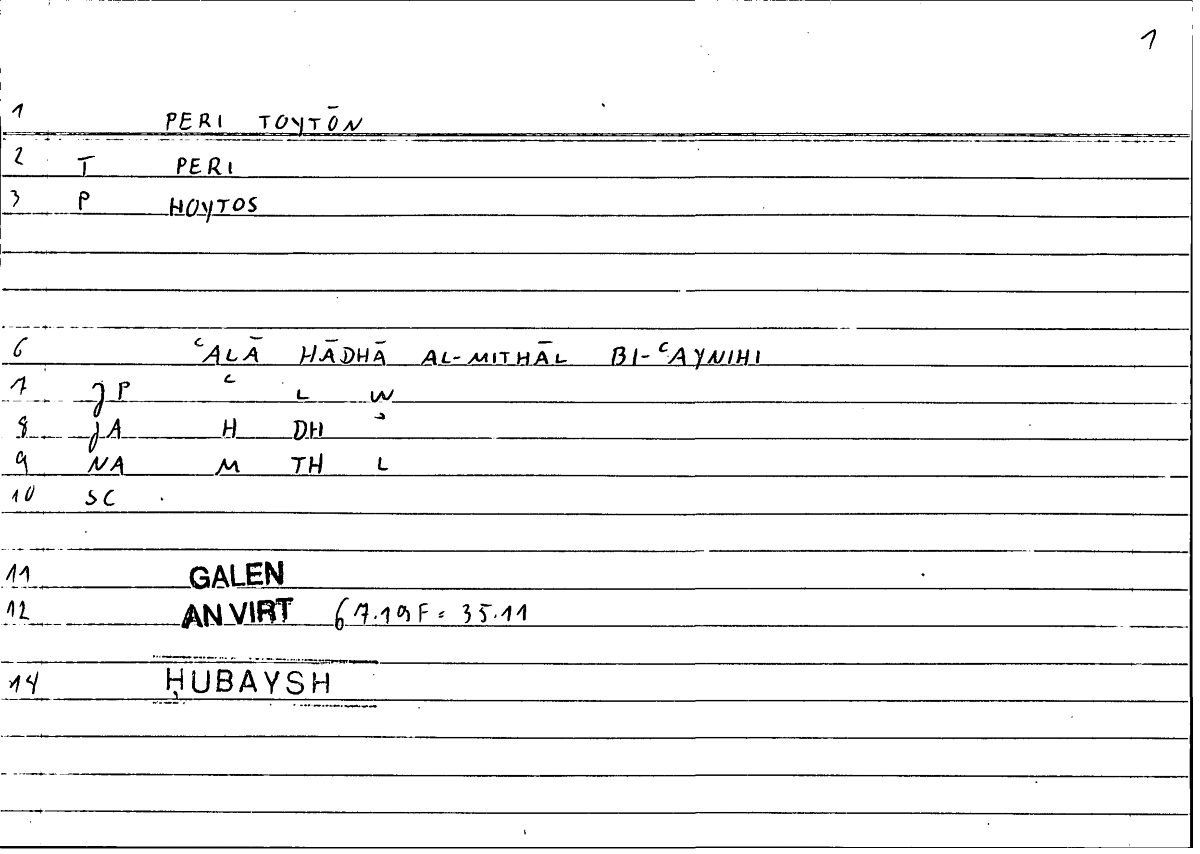 1
1 PERI TOYTŌN
2 T PERI
3 P HOYTOS
6 ʿALĀ HĀDHĀ AL-MITHĀL BI-ʿAYNIHI
7 jP ʿ L W
8 jA H DH ʾ
9 NA M TH L
10 SC
11 GALEN
12 AN VIRT 67.19F = 35.11
14 ḤUBAYSH